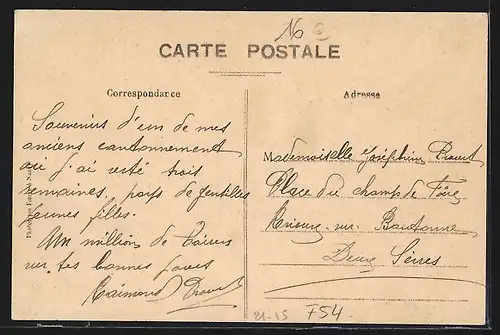 No
CARTE POSTALE
Correspondance
Adresse
Souvenirs d'un de mes
anciens cantonnement
où j'ai resté trois
semaines, pays de gentilles
jeunes filles.
Un million de baisers
sur tes bonnes joues
Raimond
Mademoiselle Joséphine
Place du champ de Foire
sur
Deux Sèvres
21-15
F54.